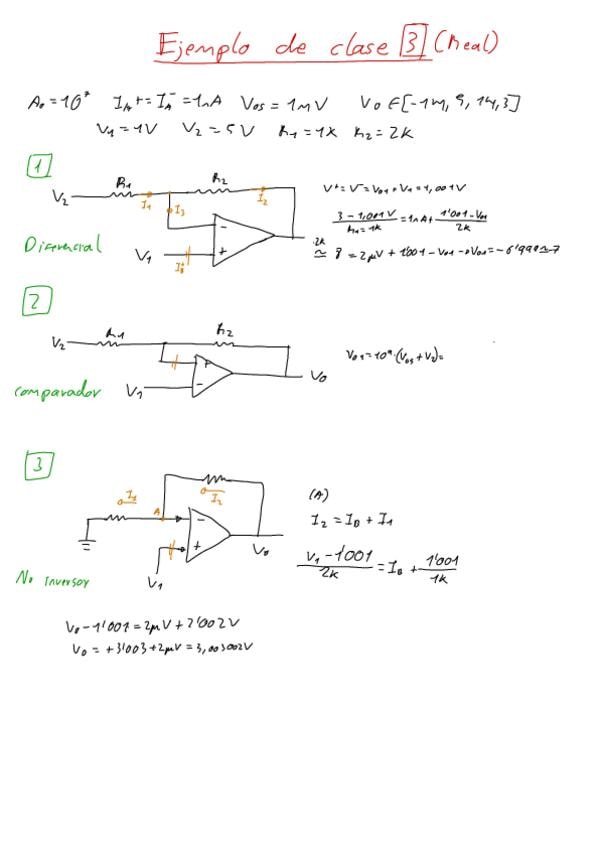 Ejemplo de clase 3 (Real)
A₀=10⁷ I_A⁺=I_A⁻=1nA Vos=1mV Vo∈[-14,9,14,3]
V₁=1V V₂=5V R₁=1K R₂=2K
1
R₁ R₂
V₂ I₁ I₃ I₂
V₁ - +
Diferencial
V⁺=V⁻=Vo₁+V₁=1,001V
3-1,001V / R₁=1K = 1nA+ 1'001-Vo₁ / 2K
·2K
=2μV+1'001-Vo₁→Vo₁=-6'999≃-7
2
R₁ R₂
V₂ + Vo
V₁ -
comparador
3
I₁ A I₂
- +
Vo
V₁
No inversor
(A)
I₂=I_B+I₁
V₁-1'001 / 2K = I_B + 1'001 / 1K
Vo-1'001=2μV+2'002V
Vo=+3'003+2μV=3,003002V